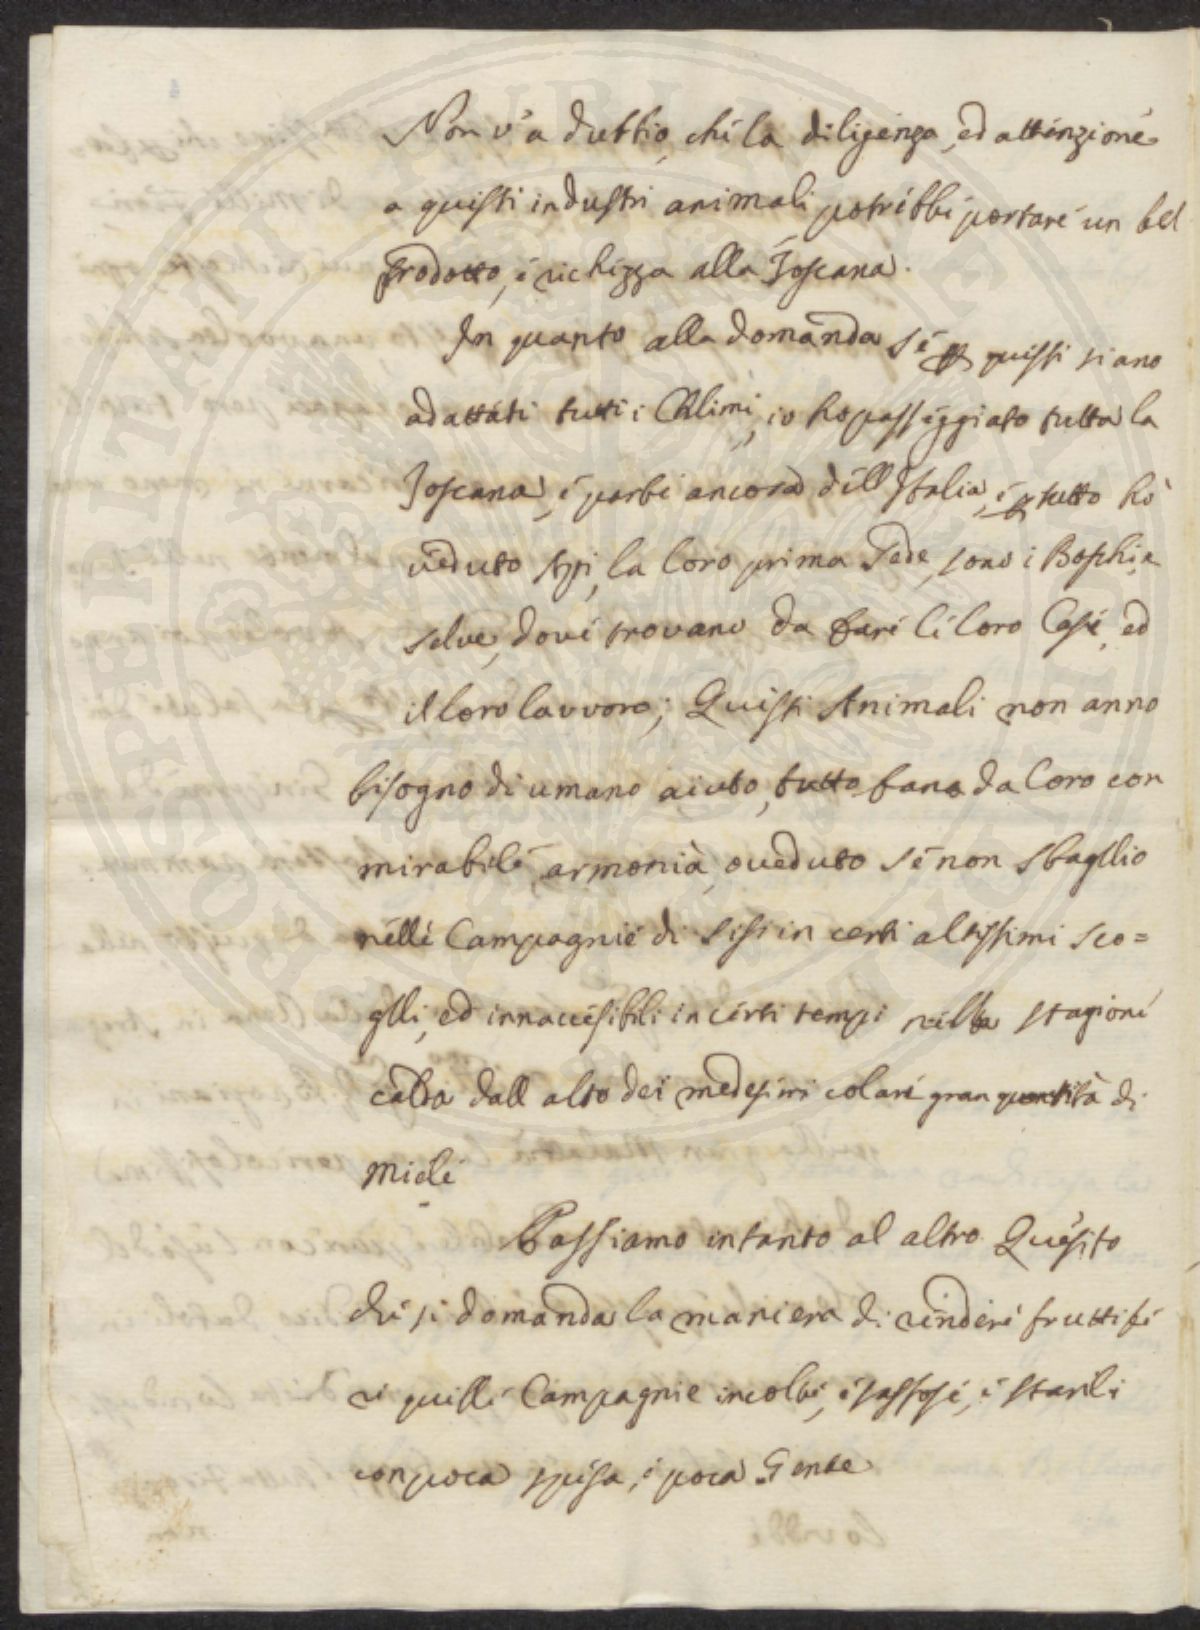 Non v'a dubbio, che la diligenza, ed attenzione
a questi industri animali, potrebbe portare un bel
prodotto, e richezza alla Toscana.
In quanto alla domanda se questi siano
adattati tutti i Climi, io ho passeggiato tutta la
Toscana, e parte ancora dell Italia, e tutto hò
veduto Api, la loro prima Sede, sono i Boschi, e
selve, dove trovano da fare le loro Case, ed
il loro lavvoro; Questi Animali non anno
bisogno di umano aiuto, tutto fano da loro con
mirabile, armonia, o veduto se non sbagllio
nelle Campagnie di Sisi in certi altissimi sco=
glli, ed innaccesibili in certi tempi nella stagione
calda dall alto dei medesimi colare gran quantità di
miele
Passiamo intanto al altro Quesito
che si domanda la maniera di rendere fruttife
re quelle Campagnie incolte, e sassose, e sterili
con poca spesa, e poca Gente